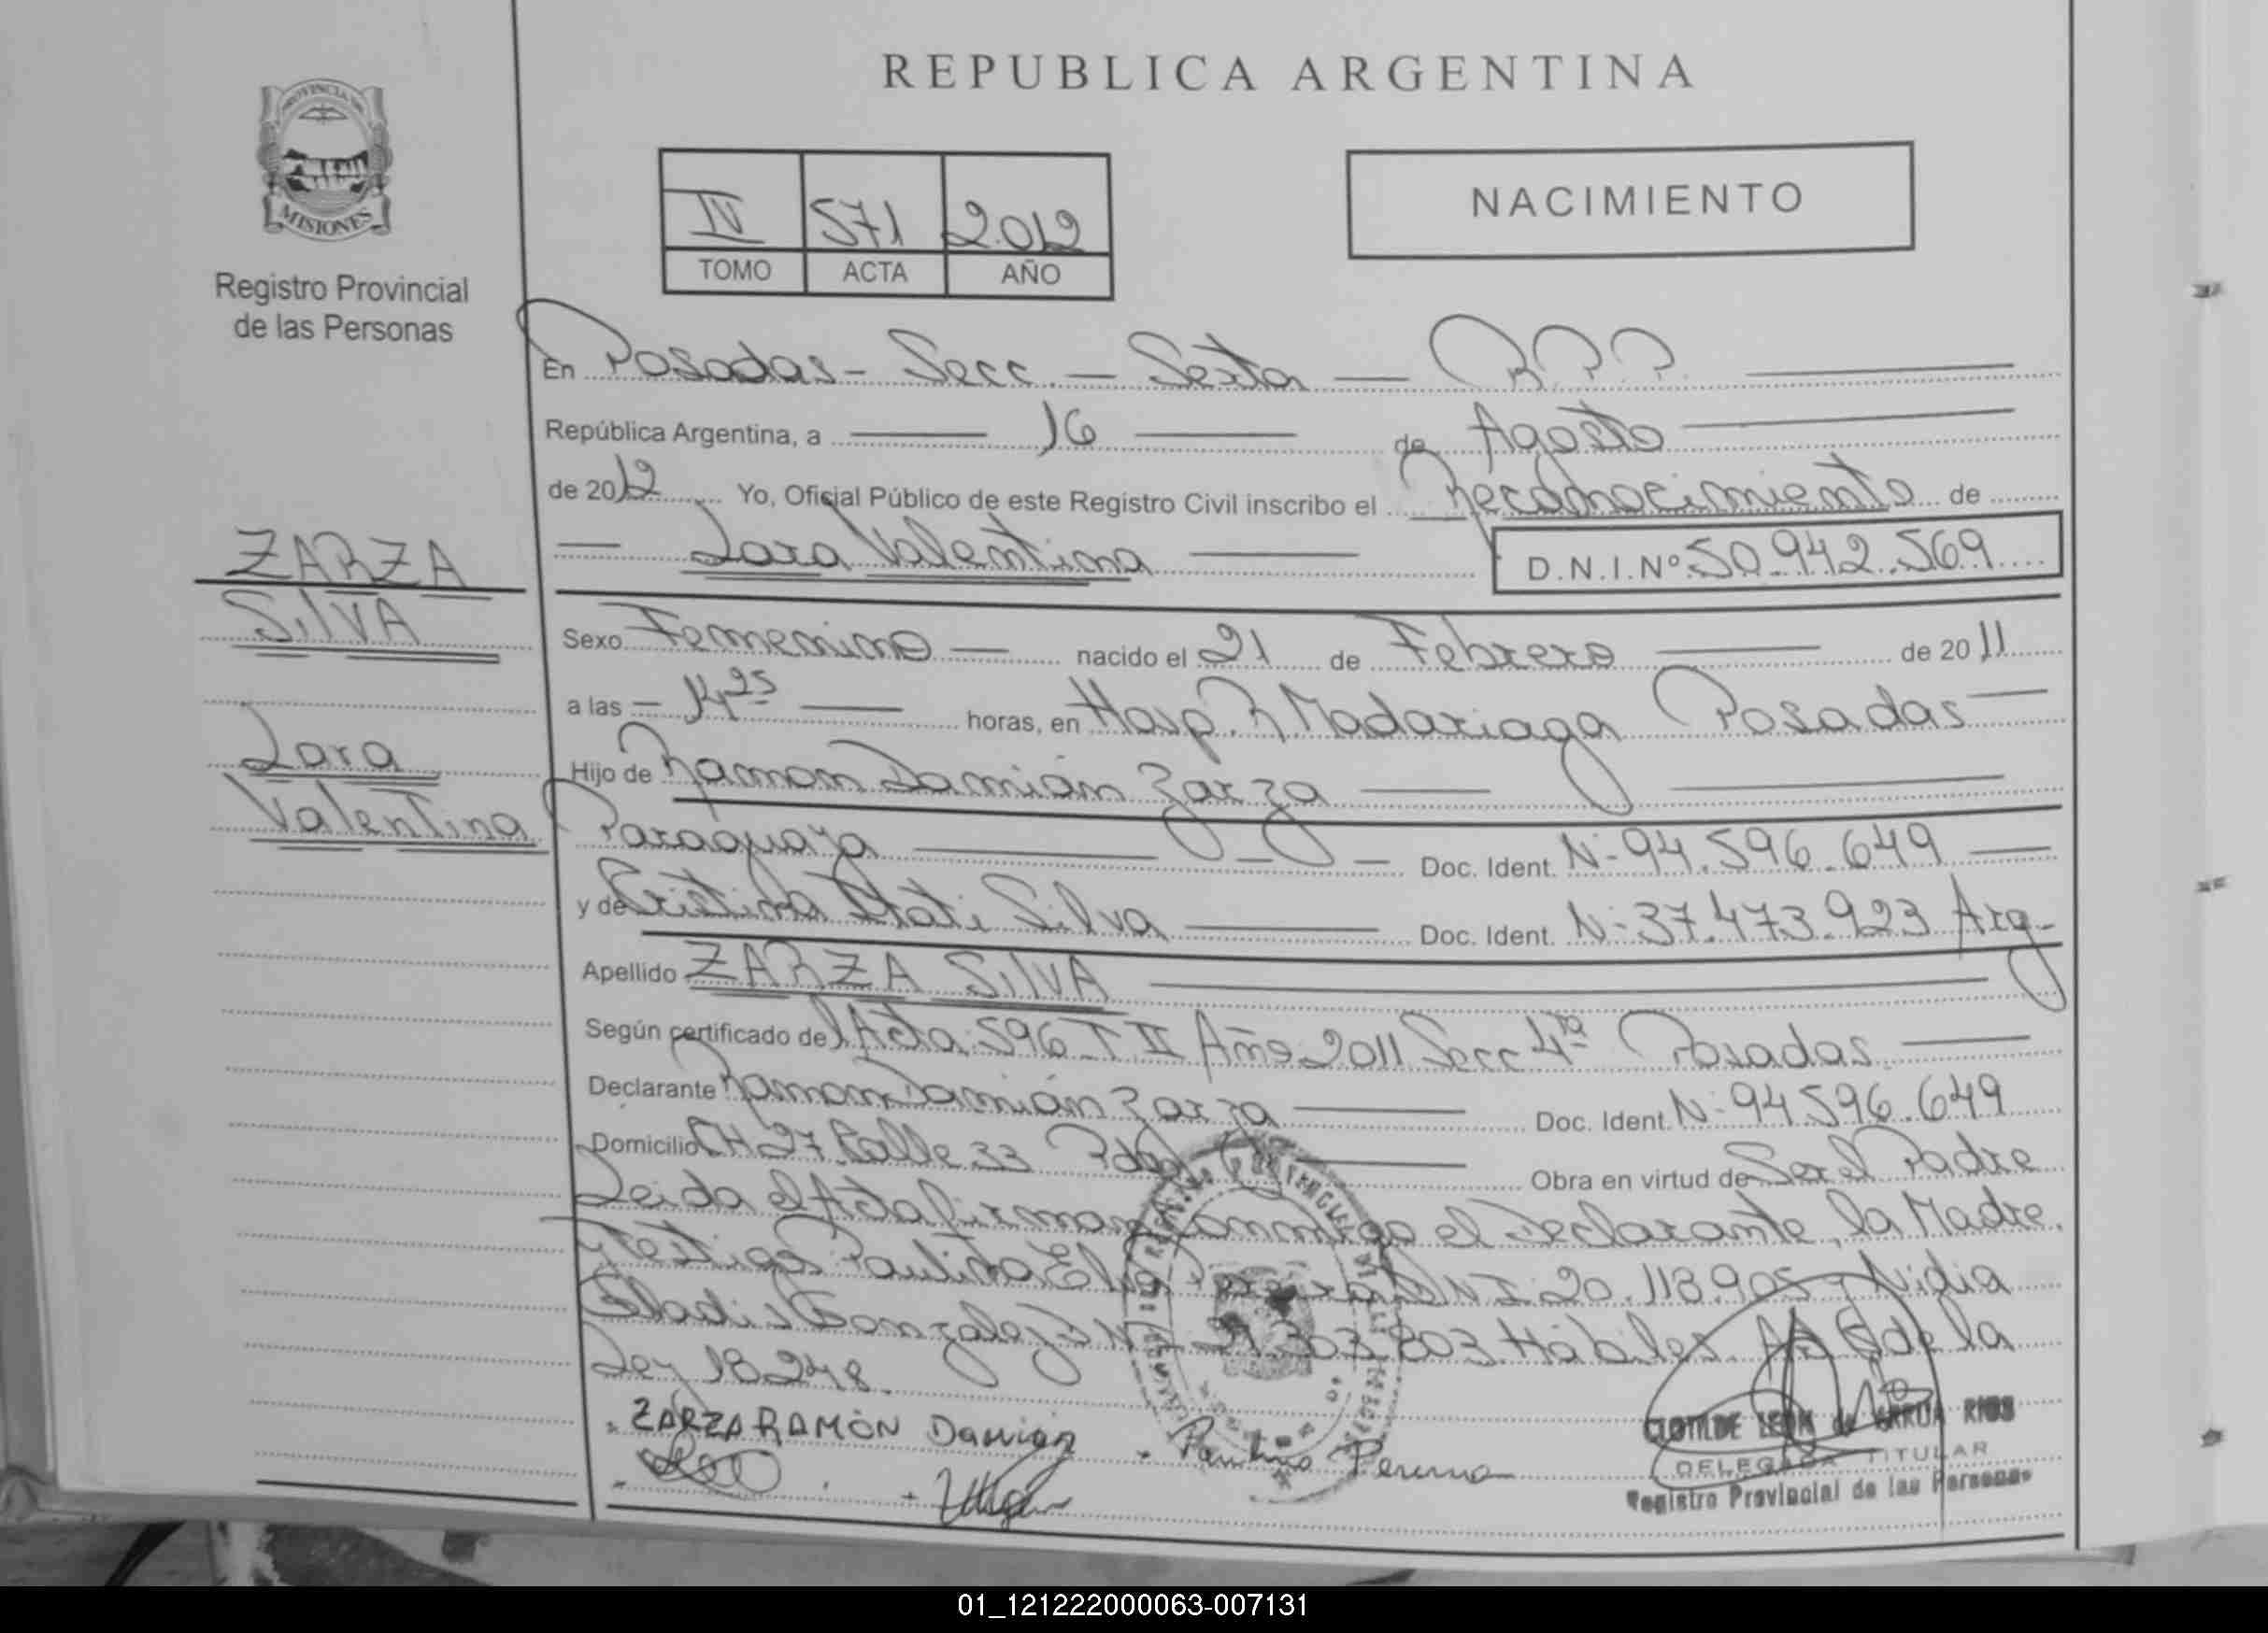 REPUBLICA ARGENTINA
PROVINCIA DE
MISIONES
Registro Provincial
de las Personas
IV 571 2.012
TOMO ACTA AÑO
NACIMIENTO
En Posadas - Secc. - Sexta - R.P.P.
República Argentina, a 16 de Agosto
de 2012 Yo, Oficial Público de este Registro Civil inscribo el Reconocimiento de
Lara Valentina D.N.I.Nº 50.942.569
ZARZA
SILVA
Lara
Valentina
Sexo Femenino nacido el 21 de Febrero de 2011
a las 14 25 horas, en Hosp. R. Madariaga Posadas
Hijo de Ramon Damián Zarza
Paraguaya Doc. Ident. Nº 94.596.649
y de Cristina Itati Silva Doc. Ident. Nº 37.473.923 Arg.
Apellido ZARZA SILVA
Según certificado del Acta 596 T II Año 2011 Secc 4ta Posadas
Declarante Ramon Damián Zarza Doc. Ident. Nº 94.596.649
Domicilio CH 27 Calle 33 Pdas Obra en virtud de Ser el Padre
Leida el Acta firman conmigo el Declarante, la Madre
y testigos Paulina Elva Pereyra DNI 20.118.905 y Nidia
Gladis Gonzalez DNI 303.803 Hábiles. de la
Ley 18.248.
ZARZA RAMÓN Damian
Paulina Pereira
CLOTILDE LEON de GARCIA RIOS
DELEGADA TITULAR
Registro Provincial de las Personas
01_121222000063-007131